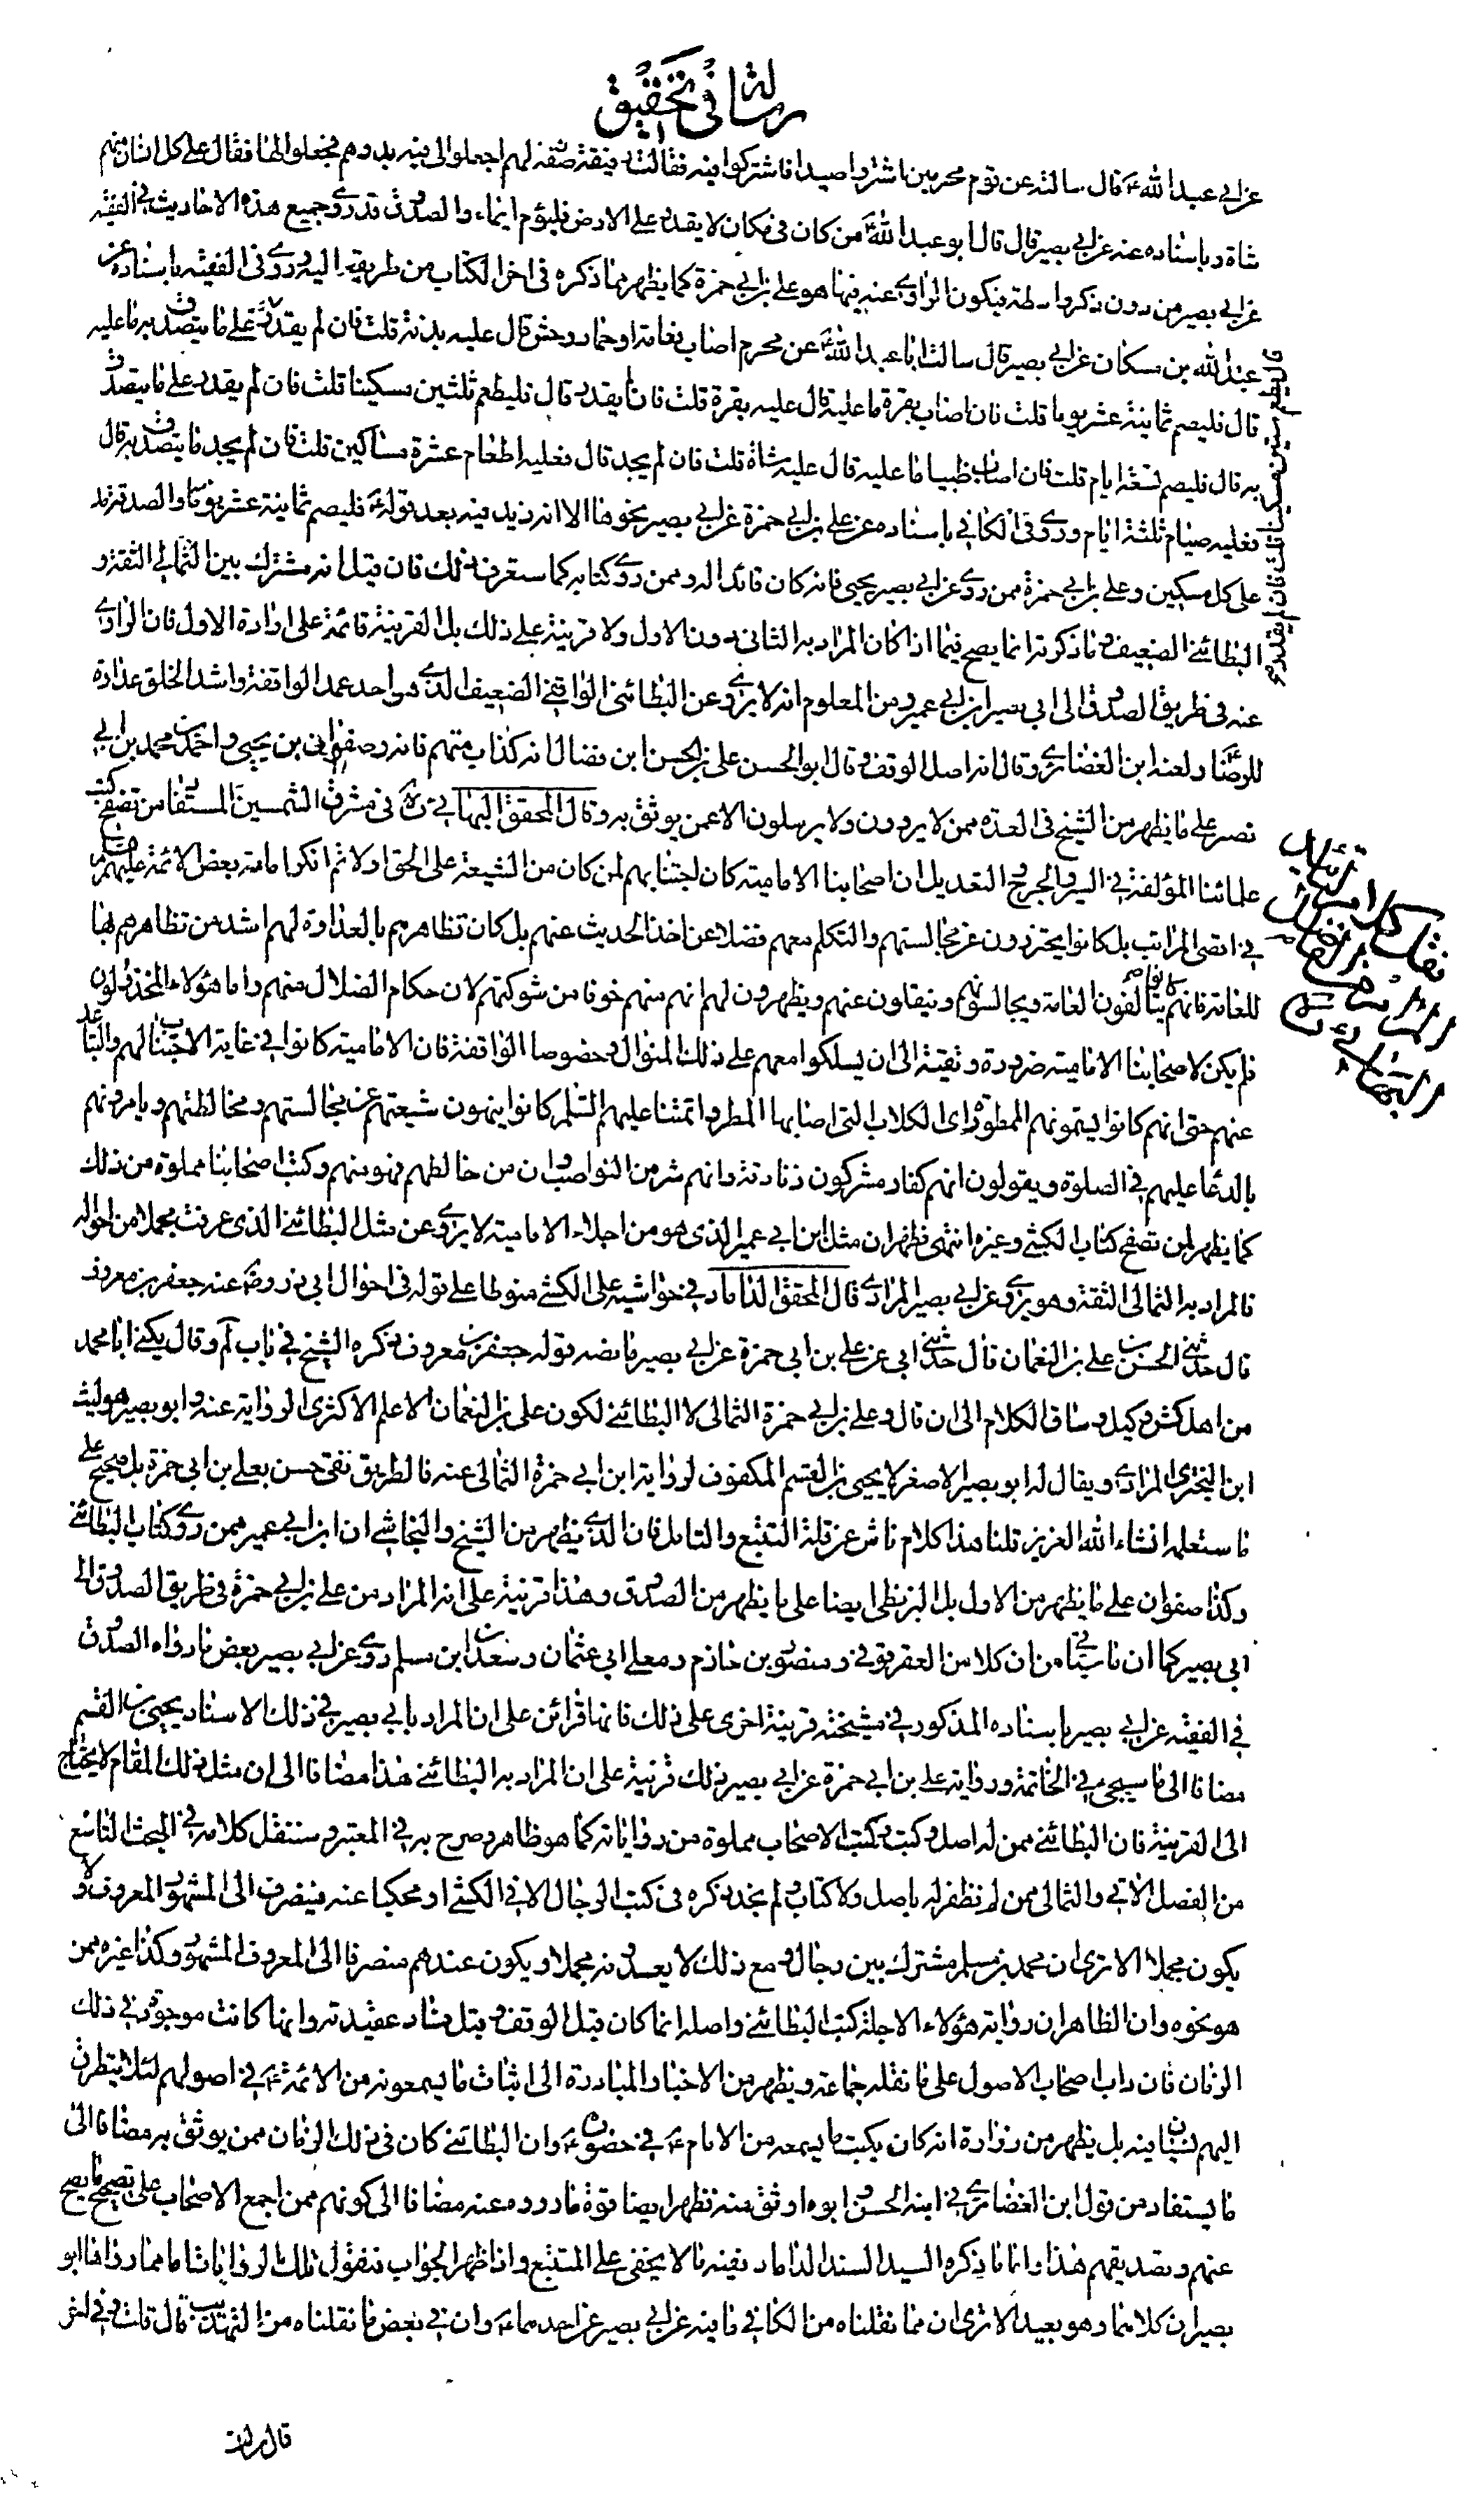 رسالة في تحقيق
عن ابي عبد الله ع قال سالته عن قوم محرمين اشتروا صيدا فاشتركوا فيه فقالت رفيقة لهم اجعلوا لي فيه بدرهم فجعلوا لها فقال على كل انسان منهم
شاة و باسناده عنه عن ابي بصير قال قال ابو عبد الله ع من كان في مكان لا يقدر على الارض فليؤم ايماء و الصدوق قد روى جميع هذه الاحاديث في الفقيه
عن ابي بصير من دون ذكر واسطة فيكون الراوي عنه فيها هو علي بن ابي حمزة كما يظهر مما ذكره في اخر الكتاب من طريقه اليه و روى في الفقيه باسناده عن
عبد الله بن مسكان عن ابي بصير قال سالت ابا عبد الله ع عن محرم اصاب نعامة او حمار وحش قال عليه بدنة قلت فان لم يقدر على ما يتصدق به ما عليه
قال فليصم ثمانية عشر يوما قلت فان اصاب بقرة ما عليه قال عليه بقرة قلت فان لم يقدر قال فليطعم ثلثين مسكينا قلت فان لم يقدر على ما يتصدق
به قال فليصم تسعة ايام قلت فان اصاب ظبيا ما عليه قال عليه شاة قلت فان لم يجد قال فعليه اطعام عشرة مساكين قلت فان لم يجد ما يتصدق به قال
فعليه صيام ثلثة ايام و روى في الكافي باسناده عن علي بن ابي حمزة عن ابي بصير نحوها الا انه زيد فيه بعد قوله ع فليصم ثمانية عشر يوما و الصدقة مد
على كل مسكين و علي بن ابي حمزة ممن روى عن ابي بصير يحيى فانه كان قائدا له و ممن روى كتابه كما ستعرف ذلك فان قيل انه مشترك بين الثمالي الثقة و
البطائني الضعيف و ما ذكرته انما يصح فيما اذا كان المراد به الثاني دون الاول و لا قرينة على ذلك بل القرينة قائمة على ارادة الاول فان الراوي
عنه في طريق الصدوق الى ابي بصير ابن ابي عمير و من المعلوم انه لا يروى عن البطائني الواقفي الضعيف الذي هو احد عمد الواقفة و اشد الخلق عداوة
للرضا ع و لعنه ابن الغضائري و قال انه اصل الوقف و قال ابو الحسن علي بن الحسن ابن فضال انه كذاب متهم فانه و صفوان بن يحيى و احمد بن محمد بن ابي
نصر على ما يظهر من الشيخ في العدة ممن لا يروون و لا يرسلون الا عمن يوثق به و قال المحقق البهائي ره في مشرق الشمسين المستفاد من تصفح كتب
علمائنا المؤلفة في السير و الجرح و التعديل ان اصحابنا الامامية كان اجتنابهم لمن كان من الشيعة على الحق اولا ثم انكر امامة بعض الائمة عليهم السلام
في اقصى المراتب بل كانوا يحترزون عن مجالستهم و التكلم معهم فضلا عن اخذ الحديث عنهم بل كان تظاهرهم بالعداوة لهم اشد من تظاهرهم بها
للعامة فانهم كانوا يتالفون العامة و يجالسونهم و ينقلون عنهم و يظهرون لهم انهم منهم خوفا من شوكتهم لان حكام الضلال منهم و اما هؤلاء المخذولون
فلم يكن لاصحابنا الامامية ضرورة و تقية الى ان يسلكوا معهم على ذلك المنوال و خصوصا الواقفة فان الامامية كانوا في غاية الاجتناب لهم و التباعد
عنهم حتى انهم كانوا يسمونهم الممطورة اي الكلاب التي اصابها المطر و ائمتنا عليهم السلم كانوا ينهون شيعتهم عن مجالستهم و مخالطتهم و يامرونهم
بالدعا عليهم في الصلوة و يقولون انهم كفار مشركون زنادقة و انهم شر من النواصب و ان من خالطهم فهو منهم و كتب اصحابنا مملوة من ذلك
كما يظهر لمن تصفح كتاب الكشي و غيره انتهى فظهر ان مثل ابن ابي عمير الذي هو من اجلاء الامامية لا يروى عن مثل البطائني الذي عرفت مجملا من احواله
فالمراد به الثمالي الثقة و هو يروى عن ابي بصير المرادي قال المحقق الداماد في حواشيه على الكشي منوطا على قوله في احوال ابي ذر رضي عنه جعفر بن معروف
قال حدثني الحسن بن علي بن النعمان قال حدثني ابي عن علي بن ابي حمزة عن ابي بصير ما نصه قوله جعفر بن معروف ذكره الشيخ في باب لم و قال يكنى ابا محمد
من اهل كش وكيل و ساق الكلام الى ان قال و علي بن ابي حمزة الثمالي لا البطائني لكون علي بن النعمان الاعلم الاكثري الرواية عنه و ابو بصير هو ليث
ابن البختري المرادي و يقال له ابو بصير الاصغر لا يحيى بن القسم المكفوف لرواية ابن ابي حمزة الثمالي عنه فالطريق نقي حسن بعلي بن ابي حمزة بل صحيح على
ما ستعلمه انشاء الله العزيز قلنا هذا كلام ناش عن قلة التتبع و التامل فان الذي يظهر من الشيخ و النجاشي ان ابن ابي عمير ممن روى كتاب البطائني
و كذا صفوان على ما يظهر من الاول بل البزنطي ايضا على ما يظهر من الصدوق و هذا قرينة على انه المراد من علي بن ابي حمزة في طريق الصدوق الى
ابي بصير كما ان ما سياتي من ان كلا من العقرقوفي و منصور بن حازم و معلى ابي عثمان و سعدان بن مسلم روى عن ابي بصير بعض ما رواه الصدوق
في الفقيه عن ابي بصير باسناده المذكور في مشيخته قرينة اخرى على ذلك فانها قرائن على ان المراد بابي بصير في ذلك الاسناد يحيى بن القسم
مضافا الى ما سيجيء في الخاتمة و رواية علي بن ابي حمزة عن ابي بصير ذلك قرينة على ان المراد به البطائني هذا مضافا الى ان مثل ذلك المقام لا يحتاج
الى القرينة فان البطائني ممن له اصل و كتب و كتب الاصحاب مملوة من رواياته كما هو ظاهر و صرح به في المعتبر و سننقل كلامه في البحث التاسع
من الفصل الاتي و الثمالي ممن لم نظفر له باصل و لا كتاب و لم نجد ذكره في كتب الرجال الا في الكشي او محكيا عنه فينصرف الى المشهور المعروف و لا
يكون مجملا الا ترى ان محمد بن مسلم مشترك بين رجال و مع ذلك لا يعدونه مجملا و يكون عندهم منصرفا الى المعروف المشهور و كذا غيره ممن
هو نحوه و ان الظاهر ان رواية هؤلاء الاجلة كتب البطائني و اصله انما كان قبل الوقف و قبل فساد عقيدته و انها كانت موجودة في ذلك
الزمان فان داب اصحاب الاصول على ما نقله جماعة و يظهر من الاخبار المبادرة الى اثبات ما يسمعونه من الائمة ع في اصولهم لئلا يتطرق
اليهم نسيان فيه بل يظهر من زرارة انه كان يكتب ما يسمعه من الامام ع في حضوره ع و ان البطائني كان في ذلك الزمان ممن يوثق به مضافا الى
ما يستفاد من قول ابن الغضائري في ابنه الحسن و ابوه اوثق منه تظهر ايضا قوة ما رووه عنه مضافا الى كونهم ممن اجمع الاصحاب على تصحيح ما يصح
عنهم و تصديقهم هذا و اما ما ذكره السيد السند الداماد ففيه ما لا يخفى على المتتبع و اذا ظهر الجواب فنقول تلك الروايات اما مما رواها ابو
بصير ان كلاهما و هو بعيد الا ترى ان مما نقلناه من الكافي ما فيه عن ابي بصير عن احدهما ع و ان في بعض ما نقلناه من التهذيب قال قلت و في اخر
قال قلت فان لم يقدر
نقل كلام
البهائي
قال قلت